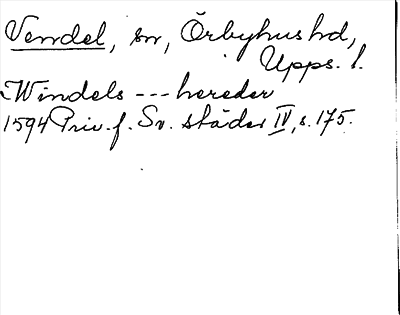 Vendel, sn, Örbyhus hd,
Upps. l.
Windels --- hereder
1594 Priv. f. Sv. städer IV, s. 175.